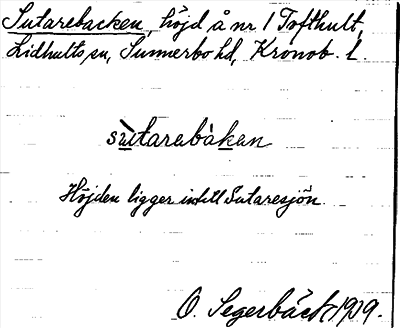 Sutarebacken, höjd å nr 1 Tofthult,
Lidhults sn, Sunnerbo hd, Kronob. l.
sùtarebàkan
Höjden ligger intill Sutaresjön.
O. Segerbäck 1939.